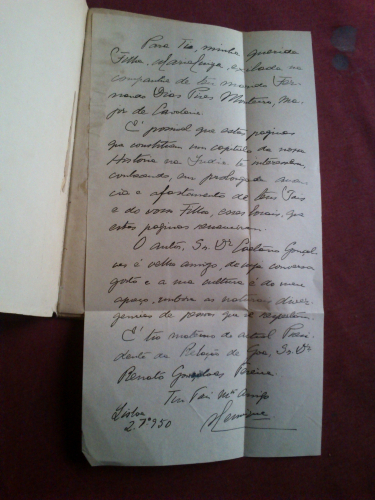 Para Tia, minha querida
Filha, Maria Luiza, exilada na
companhia de teu marido Fer-
nando Dias Pires Monteiro, Ma-
jor de Cavalaria.
É possivel que estas paginas
que constituem um capitulo da nossa
Historia na India te interessem,
em prolongada ausen-
cia e afastamento de teus Pais
e de vossa Filha, esses locais, que
estas paginas
O autor, Sr. Dr. Caetano Gonçal-
ves é velho amigo, de cuja conversa
gosto e a sua cultura é do meu
apreço, embora as naturais diver-
gencias de pensar que se respeitam.
É tio materno do actual Presi-
dente da Relação de Goa, Sr. Dr.
Renato Gonçalves Pereira.
Teu Pai Mto Amigo
Henrique
Lisboa
2.7º950